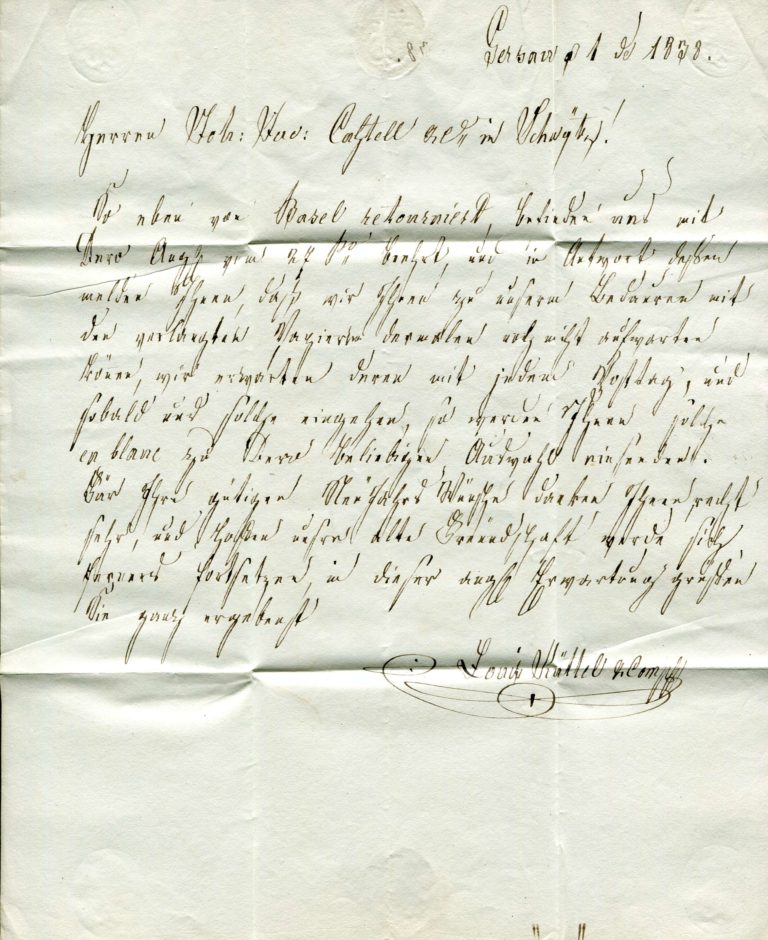 Gersau 1 1838.
Herren Castell in Schwÿtz!
So eben von Basel retourniert, befinden uns mit
Dero vom beehrt, und in Antwort dessen
melden Ihnen, daß wir Ihnen zu unserm Bedauren mit
den verlangten Papieren dermalen noch nicht aufwarten
können, wir erwarten deren mit jedem Posttag, und
sobald uns solche eingehen, so werden Ihnen solche
en blanc zu Dero beliebigen Auswahl einsenden.
Für Ihre gütigen Neujahrs Wünsche danken Ihnen recht
sehr, und hoffen unsre alte Freundschaft werde sich
ferners fortsetzen, in dieser Erwartung grüßen
Sie ganz ergebenst
Louis Küttel & Comp